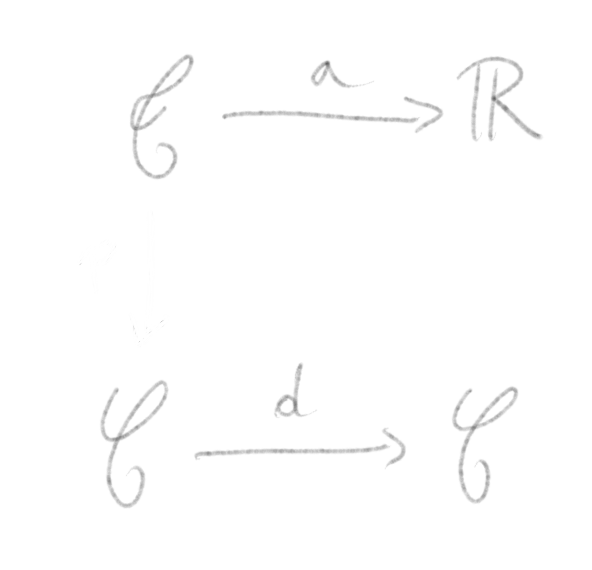 𝒞 a ⟶ ℝ
𝒞 d ⟶ 𝒞